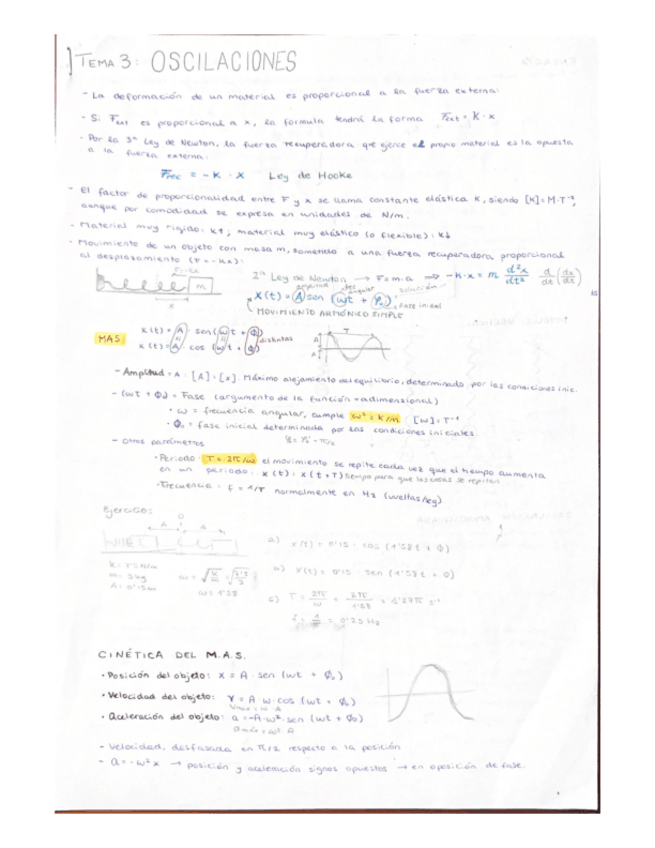 TEMA 3: OSCILACIONES
- La deformación de un material es proporcional a la fuerza externa.
- Si Fext es proporcional a x, la formula tendrá la forma Fext = K · x
- Por la 3ª Ley de Newton, la fuerza recuperadora que ejerce el propio material es la opuesta
a la fuerza externa:
Frec = - K · X Ley de Hooke
- El factor de proporcionalidad entre F y x se llama constante elástica K, siendo [K] = M·T⁻²,
aunque por comodidad se expresa en unidades de N/m.
- Material muy rígido: k↑; material muy elástico (o flexible): k↓
- Movimiento de un objeto con masa m, sometido a una fuerza recuperadora proporcional
al desplazamiento (F = -kx):
2ª Ley de Newton → F = m·a ⇒ -k·x = m d²x/dt² d/dt (dx/dt)
m
x
amplitud angular solución
X(t) = A sen (wt + φ₀) fase inicial
MOVIMIENTO ARMÓNICO SIMPLE
MAS
x(t) = A · sen (w t + φ)
x(t) = A · cos (w t + φ) distintas
T
A
A
- Amplitud = A : [A] = [x]. Máximo alejamiento del equilibrio, determinado por las condiciones inic.
- (wt + φ₀) = Fase (argumento de la función = adimensional)
· ω = frecuencia angular, cumple ω² = K/m [w] = T⁻¹
· φ₀ = fase inicial determinada por las condiciones iniciales
- Otros parámetros
· Periodo: T = 2π/ω el movimiento se repite cada vez que el tiempo aumenta
en un periodo: x(t) = x(t+T) tiempo para que las cosas se repitan
· Frecuencia: f = 1/T normalmente en Hz (vueltas/seg)
Ejercicio:
O
A A
m = 3 kg
A = 0'15 m
w = 1'58
a) x(t) = 0'15 · cos (1'58 t + φ)
b) x(t) = 0'15 · sen (1'58 t + φ)
c) T = 2π/ω = 2π/1'58
= 0'25 Hz
CINÉTICA DEL M.A.S.
· Posición del objeto: x = A · sen (wt + φ₀)
· Velocidad del objeto: v = A·w·cos (wt + φ₀)
Vmáx = w·A
· Aceleración del objeto: a = -A·w²·sen (wt + φ₀)
amáx = w²·A
- Velocidad, desfasada en π/2 respecto a la posición
- a = -w²x → posición y aceleración signos opuestos → en oposición de fase.